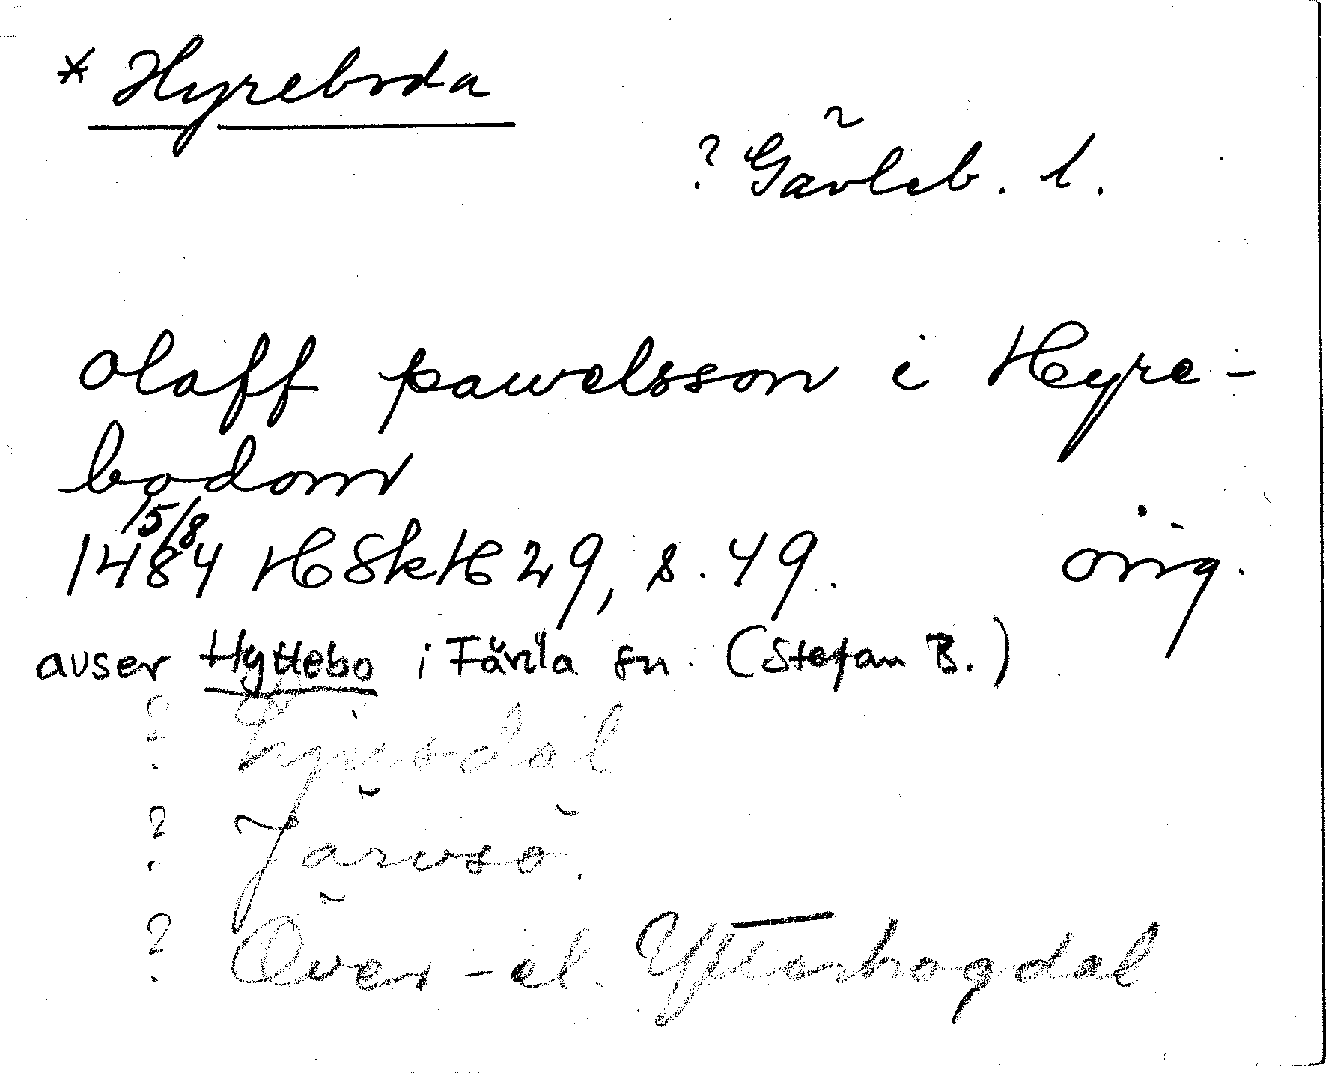 * Hyreboda
? Gävleb. l.
Olaff pawelsson i Hyre-
bodom
15/8
1484 HSkH 29, s. 49. orig.
avser Hyttebo i Färila sn. (Stefan B.)
? Ljusdal
? Järvsö.
? Över- el. Ytterhogdal